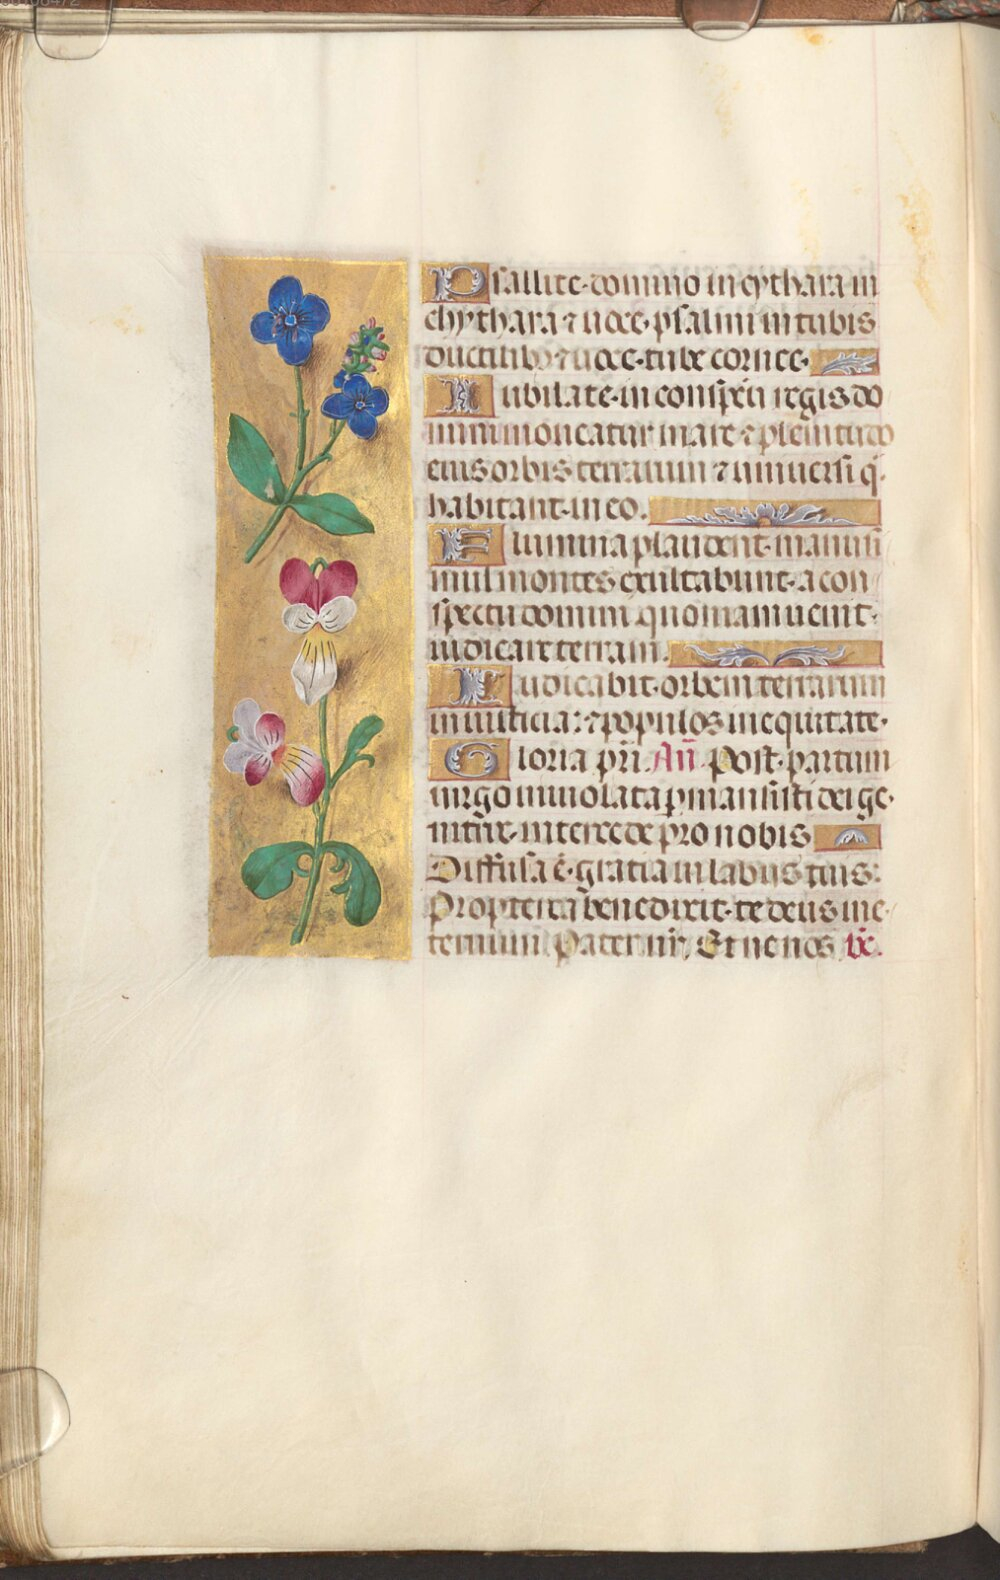 Psallite domino in cythara in
chythara ⁊ uoce psalmi in tubis
ductilib⁹ ⁊ uoce tube cornee.
Iubilate in conspĕu regis do
mini moueatur mare ⁊ plenitudo
eius orbis terrarum ⁊ uniuersi q̄
habitant in eo.
Flumina plaudent manu si
mul montes exultabunt a con
spectu domini quoniam uenit
iudicare terram.
Iudicabit orbem terrarum
in iusticia: ⁊ populos in equitate.
Gloria pr̄i. Añ. Post partum
uirgo inuiolata ꝑmansisti dei ge
nitrix intercede pro nobis
Diffusa ē gratia in labiis tuis:
Propterea benedixit te deus in e
ternum Pater nr̄. Et ne nos